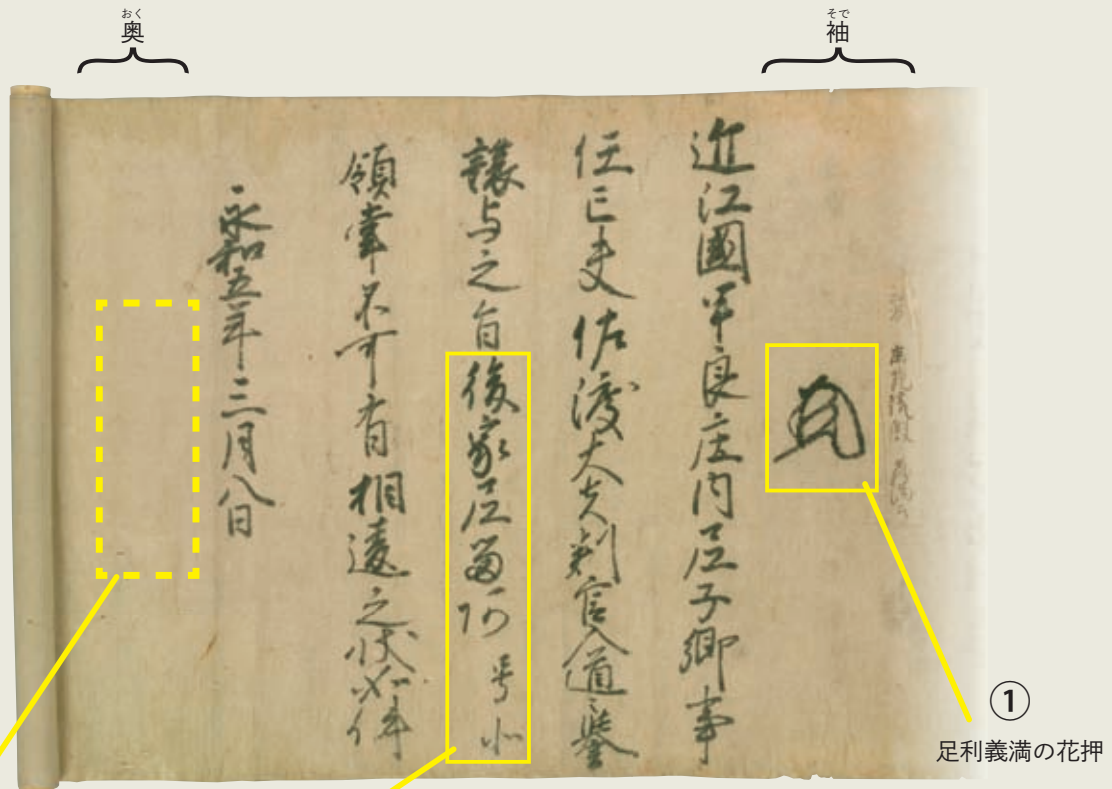 おく
奥
そで
袖
鹿苑院殿 義満公
近江國甲良庄内尼子郷事
任亡夫佐渡大夫判官入道々誉
譲与之旨後家尼留阿号北
領掌不可有相違之状如件
永和五年三月八日
①
足利義満の花押